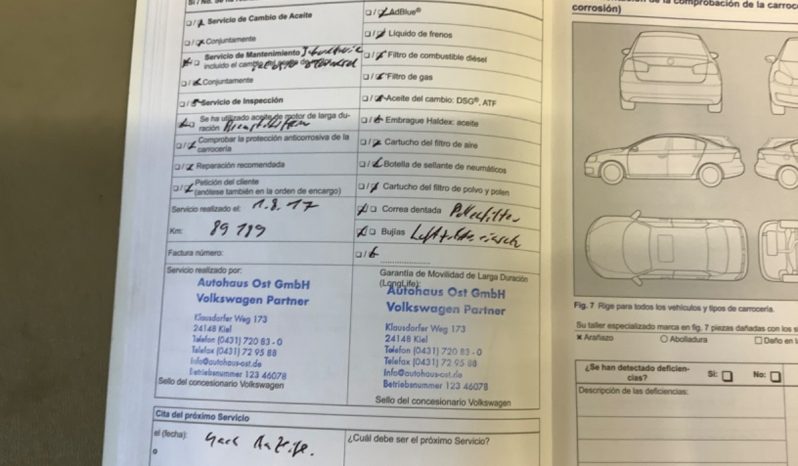 Servicio de Cambio de Aceite
Conjuntamente
Servicio de Mantenimiento
incluido el cambio
Conjuntamente
Servicio de Inspección
Se ha utilizado aceite de motor de larga du-
ración
Comprobar la protección anticorrosiva de la
carrocería
Reparación recomendada
Petición del cliente
(anótese también en la orden de encargo)
Servicio realizado el: 1.8.17
Km: 89189
Factura número:
AdBlue®
Líquido de frenos
Filtro de combustible diésel
Filtro de gas
Aceite del cambio: DSG®, ATF
Embrague Haldex: aceite
Cartucho del filtro de aire
Botella de sellante de neumáticos
Cartucho del filtro de polvo y polen
Correa dentada Pollenfilter
Bujías
Servicio realizado por:
Autohaus Ost GmbH
Volkswagen Partner
Klausdorfer Weg 173
24148 Kiel
Telefon (0431) 720 83 - 0
Telefax (0431) 72 95 88
Info@autohaus-ost.de
Betriebsnummer 123 46078
Sello del concesionario Volkswagen
Garantía de Movilidad de Larga Duración
(LongLife):
Autohaus Ost GmbH
Volkswagen Partner
Klausdorfer Weg 173
24148 Kiel
Telefon (0431) 720 83 - 0
Telefax (0431) 72 95 88
Info@autohaus-ost.de
Betriebsnummer 123 46078
Sello del concesionario Volkswagen
Cita del próximo Servicio
el (fecha): nach Anzeige.
o
¿Cuál debe ser el próximo Servicio?
de la comprobación de la carroce
corrosión)
Fig. 7 Rige para todos los vehículos y tipos de carrocería.
Su taller especializado marca en fig. 7 piezas dañadas con los s
x Arañazo O Abolladura □ Daño en l
¿Se han detectado deficien-
cias? Sí: □ No: □
Descripción de las deficiencias: